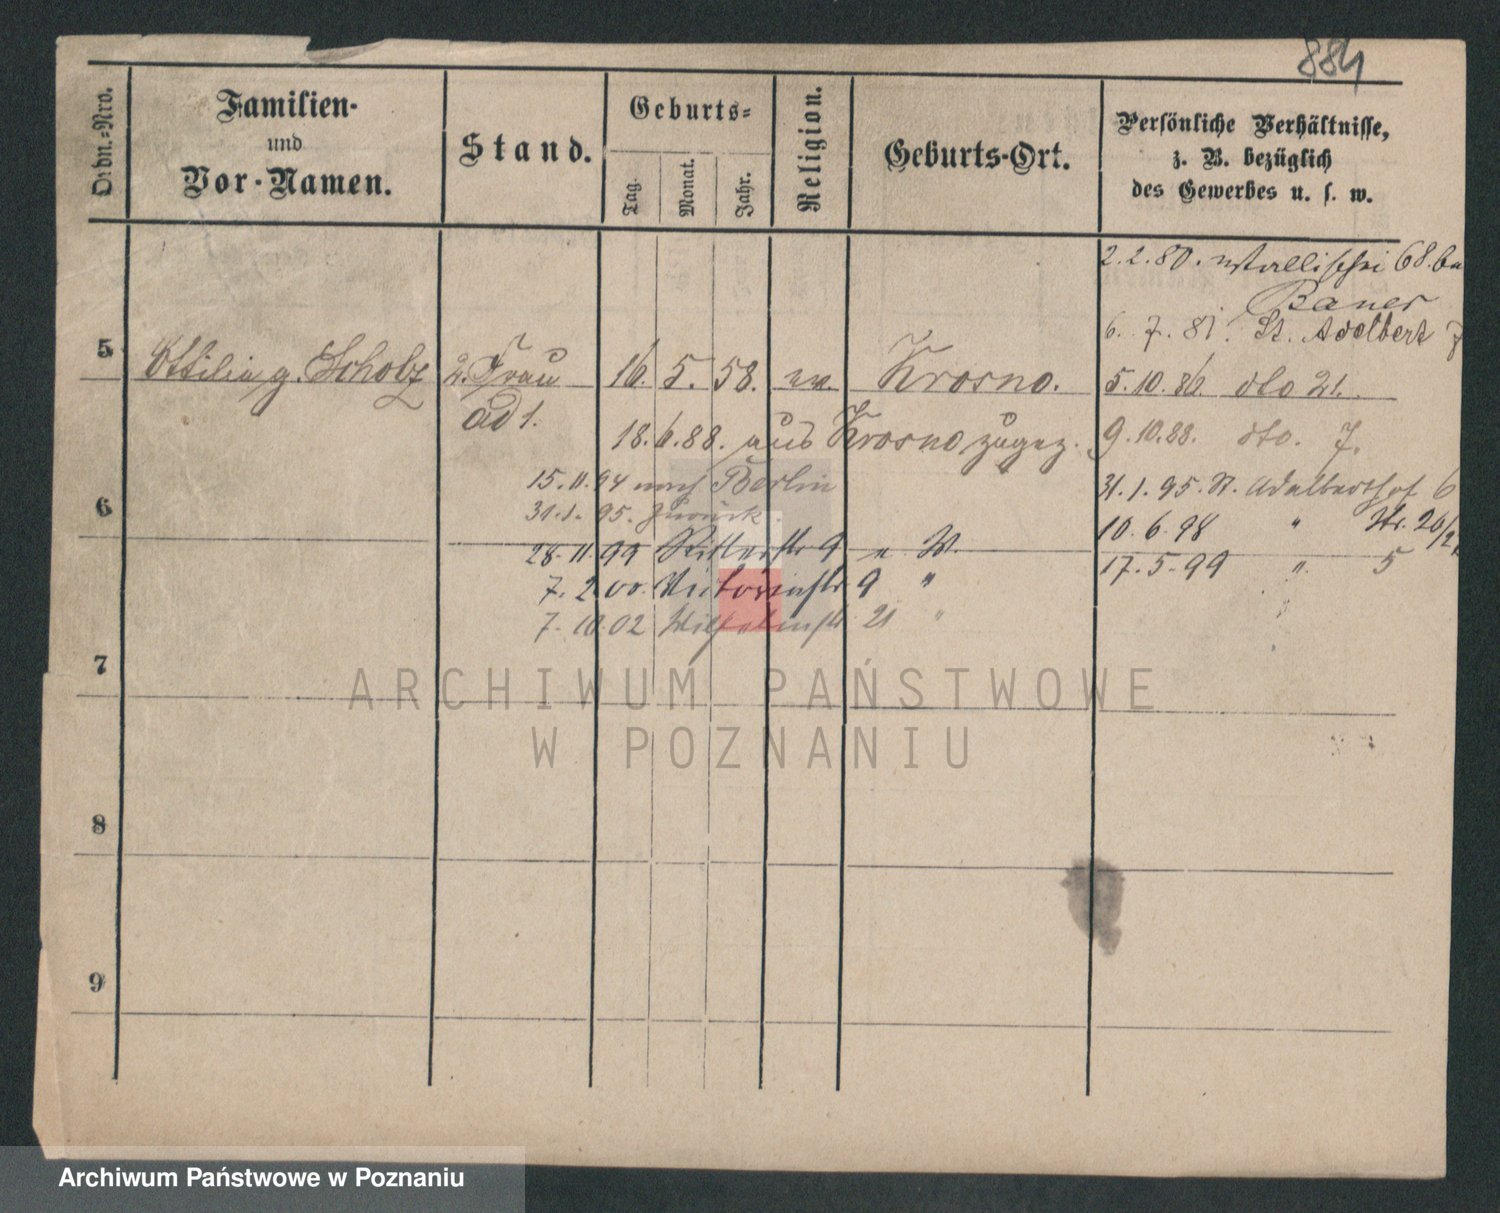 884
Ordn.-Nro.
Familien-
und
Vor-Namen.
Stand.
Geburts-
Tag.
Monat.
Jahr.
Religion.
Geburts-Ort.
Persönliche Verhältnisse,
z. B. bezüglich
des Gewerbes u. s. w.
2.2.80. Wallischei 68. bei
Bauer
6. 7. 81. St. Adalbert 7
5 Ottilia g. Scholz 2. Frau 16. 5. 58. ev. Krosno. 5.10.86. dto 21.
ad 1.
18.6.88. aus Krosno zugez. 9.10.88. dto. 7.
15.11.94 nach Berlin 31.1.95. St. Adalbertstr 6
6
31.1.95. zurück. 10.6.98 " Str. 20/21
28.11.99 Ritterstr 9 n W. 17.5.99 " 5
7.2.00. Victoriastr 9 "
7.10.02 Wilhelmstr 21 "
7
8
9
ARCHIWUM PAŃSTWOWE
W POZNANIU
Archiwum Państwowe w Poznaniu